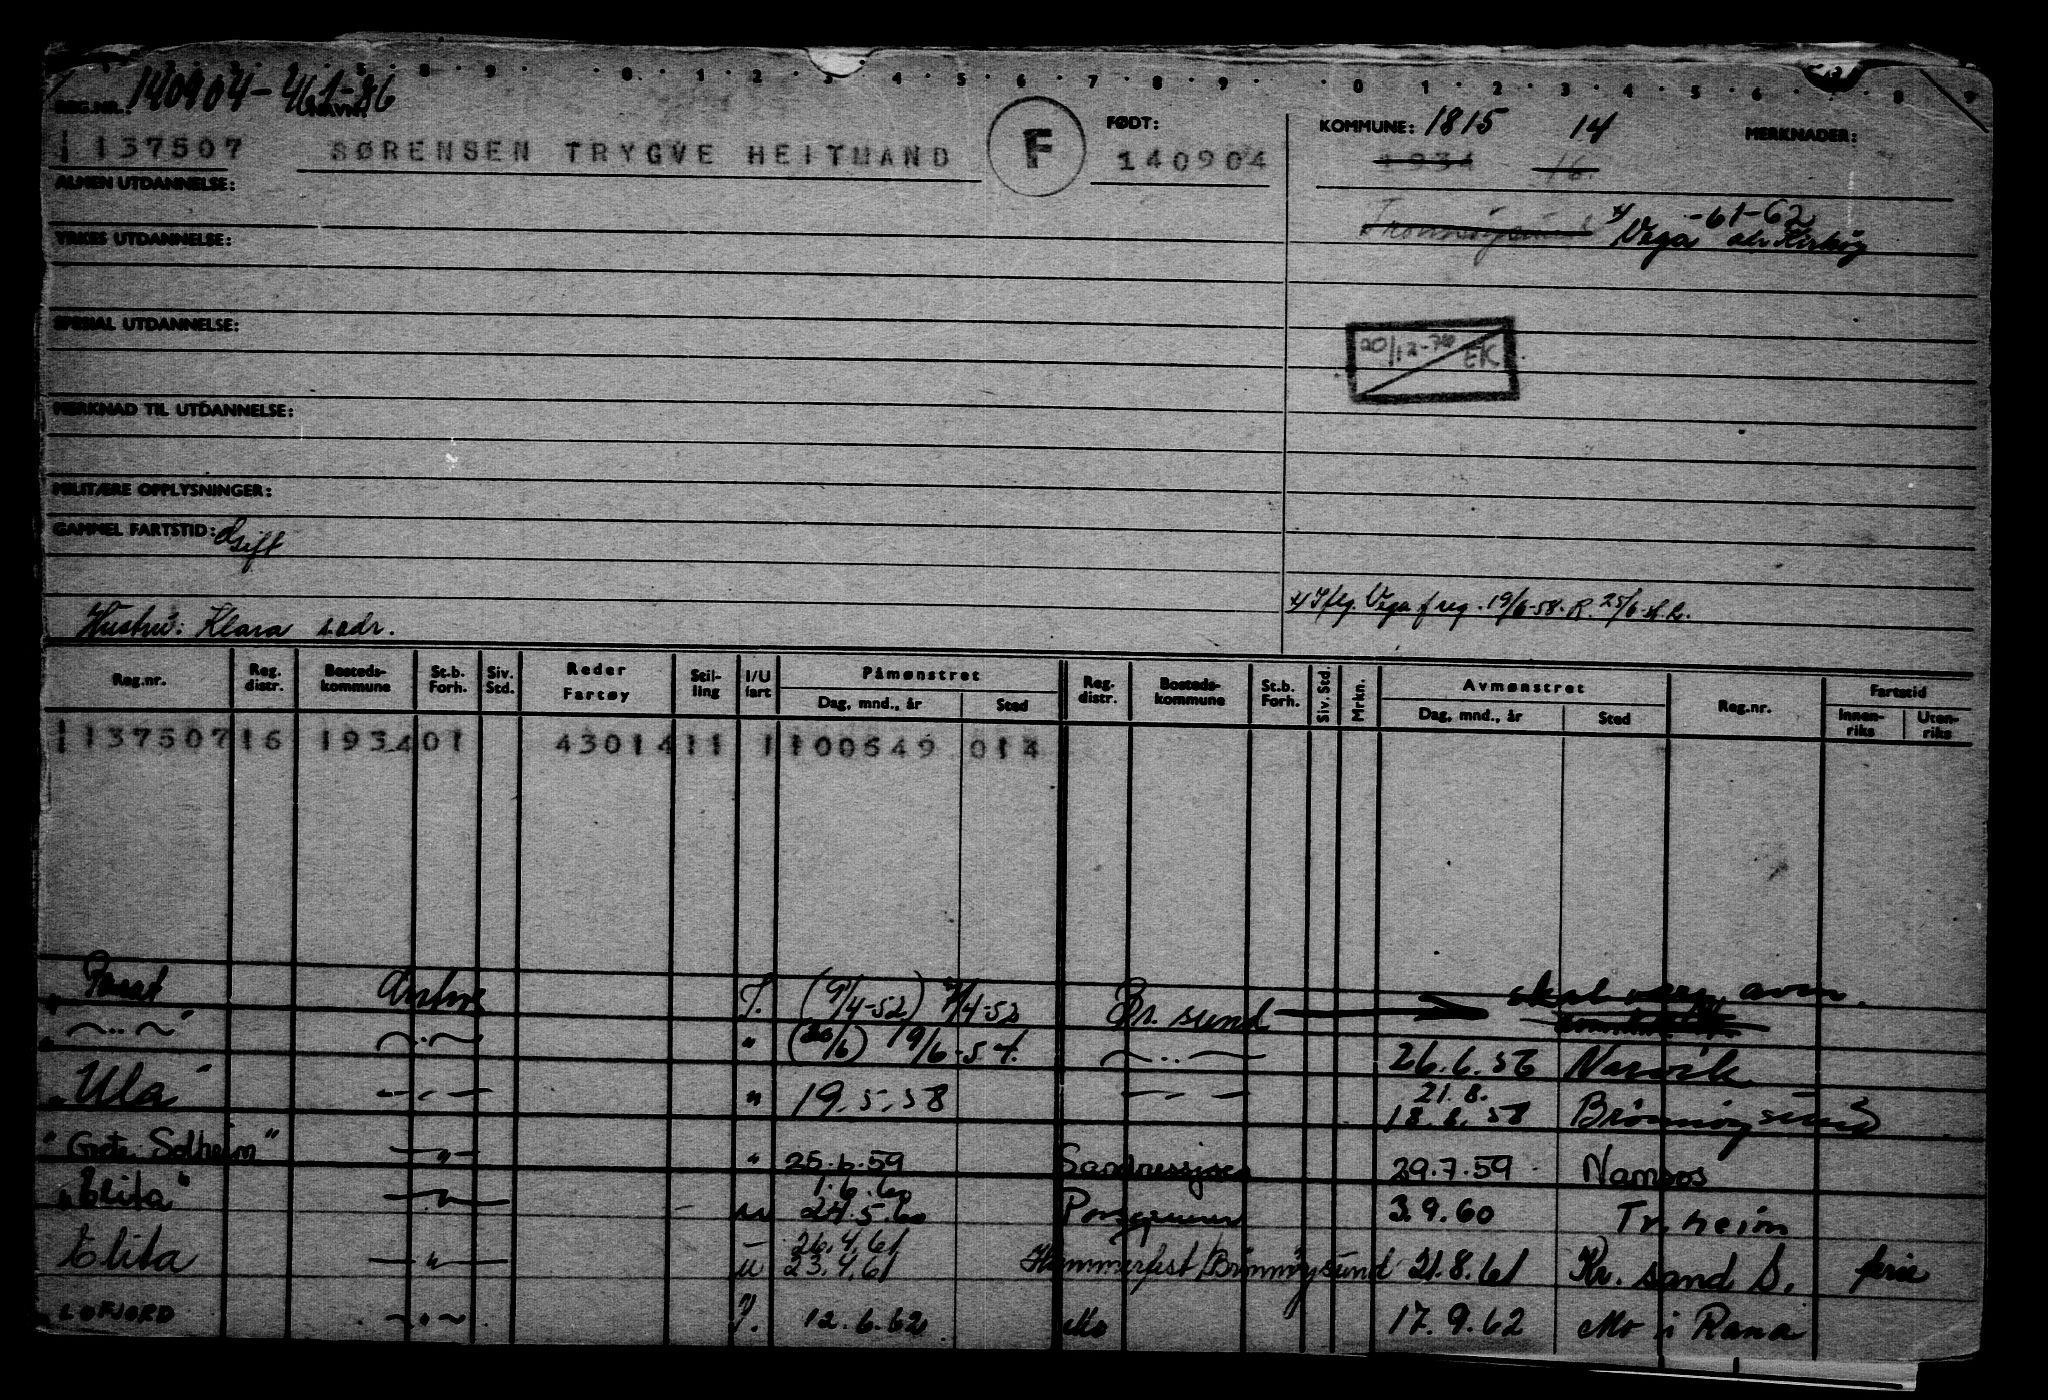 140904-46186
REG.NR.: NAVN:
137507 SØRENSEN TRYGVE HEITMAND F
FØDT:
140904
KOMMUNE: 1815 14 MERKNADER:
1934 16
-61-62
Vega
ALMEN UTDANNELSE:
YRKES UTDANNELSE:
SPESIAL UTDANNELSE:
20/12-74 EK
MERKNAD TIL UTDANNELSE:
MILITÆRE OPPLYSNINGER:
GAMMEL FARTSTID:
Gift
Hustru: Klara sadr.
x/ Iflg. Vega f reg. 19/6-58. R. 25/6
Reg.nr. Reg. distr. Bosteds-kommune St.b. Forh. Siv. Std. Reder Fartøy Stil-ling I/U fart Påmønstret Dag, mnd., år Sted Reg. distr. Bosteds-kommune St.b. Forh. Siv. Std. Mrkn. Avmønstret Dag, mnd., år Sted Reg.nr. Fartstid Innen-riks Uten-riks
137507 16 1934 01 43014 11 1 100649 014
I. (9/4-52) 7/4-52 Br. sund avm.
" - " " (20/6) 19/6-54. - " - 26.6.56 Narvik
"Ula" - " - " 19.5.58 - " - 21.8. 18.8.58 Brønnøysund
"Grete Solheim" - " - " 25.6.59 Sandnessjøen 29.7.59 Namsos
"Elita" - " - u 1.6.60 24.5.60 3.9.60 Tr.heim
Elita - " - u 26.4.61 23.4.61 Hammerfest/Brønnøysund 21.8.61 Kr.sand S.
LOFJORD - " - I. 12.6.62 Mo 17.9.62 Mo i Rana